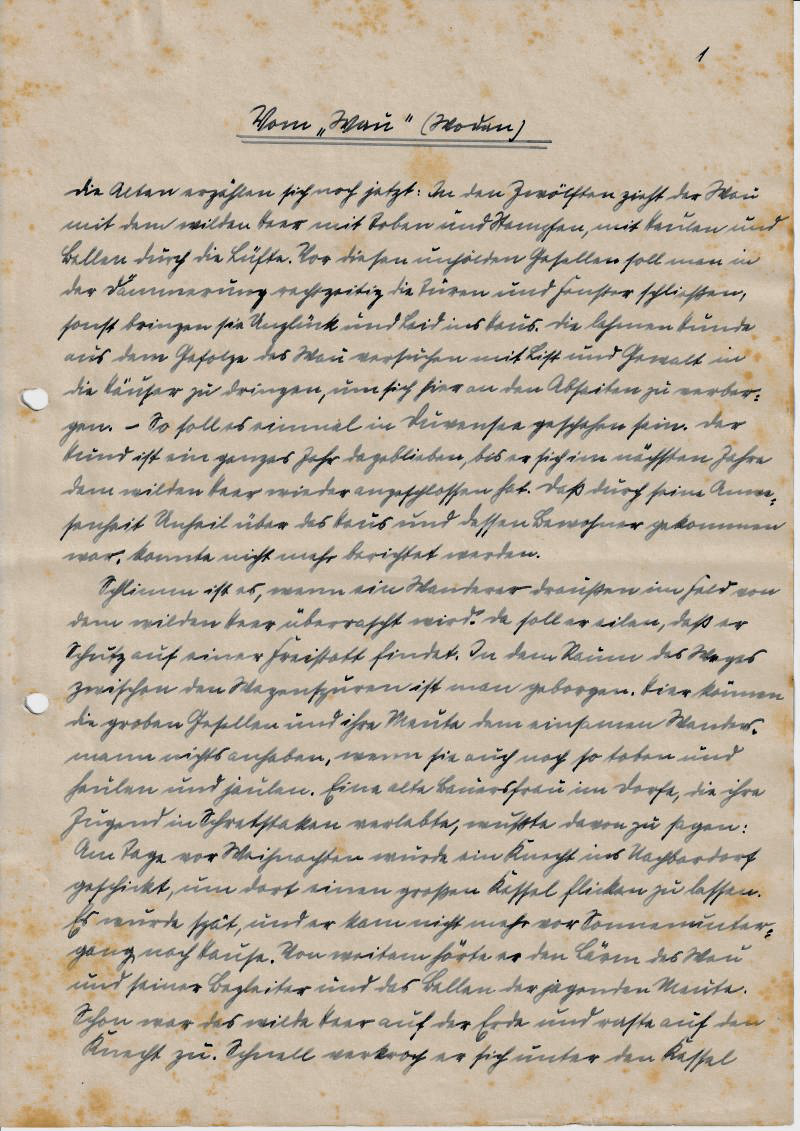 1
Vom „Wau" (Wodan)
Die Alten erzählen sich noch jetzt: In den Zwölften zieht der Wau
mit dem wilden Heer mit Toben und Stampfen, mit Heulen und
Bellen durch die Lüfte. Vor diesen unholden Gesellen soll man in
der Dämmerung rechtzeitig die Türen und Fenster schließen,
sonst bringen sie Unglück und Leid ins Haus. Die lahmen Hunde
aus dem Gefolge des Wau versuchen mit List und Gewalt in
die Häuser zu dringen, um sich hier an den Abseiten zu verber=
gen. – So soll es einmal in Duvensee geschehen sein. Der
Hund ist ein ganzes Jahr dageblieben, bis er sich im nächsten Jahre
dem wilden Heer wieder angeschlossen hat. Daß durch seine Anwe=
senheit Unheil über das Haus und dessen Bewohner gekommen
war, konnte nicht mehr berichtet werden.
Schlimm ist es, wenn ein Wanderer draußen im Feld von
dem wilden Heer überrascht wird. Da soll er eilen, daß er
Schutz auf einer Freistatt findet. In dem Raum des Weges
zwischen den Wagenspuren ist man geborgen. Hier können
die groben Gesellen und ihre Meute dem einsamen Wanders=
mann nichts anhaben, wenn sie auch noch so toben und
heulen und jaulen. Eine alte Bauersfrau im Dorfe, die ihre
Jugend in Schretstaken verlebte, wußte davon zu sagen:
Am Tage vor Weihnachten wurde ein Knecht ins Nachbardorf
geschickt, um dort einen großen Kessel flicken zu lassen.
Es wurde spät, und er kam nicht mehr vor Sonnenunter=
gang nach Hause. Von weitem hörte er den Lärm des Wau
und seiner Begleiter und das Bellen der jagenden Meute.
Schon war das wilde Heer auf der Erde und raste auf den
Knecht zu. Schnell verkroch er sich unter den Kessel